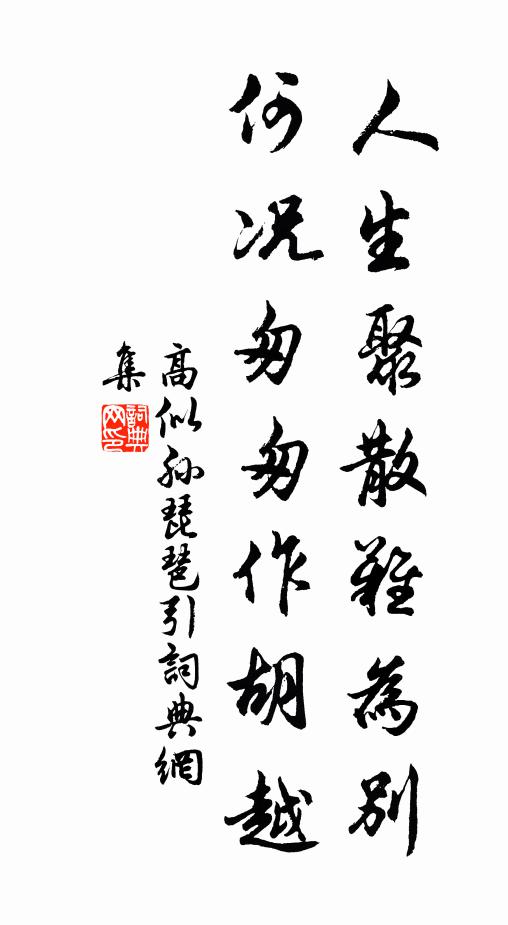 人生聚散難為別
何况匆匆作胡越
高似孫琵琶引詞典網
集
詞典網印